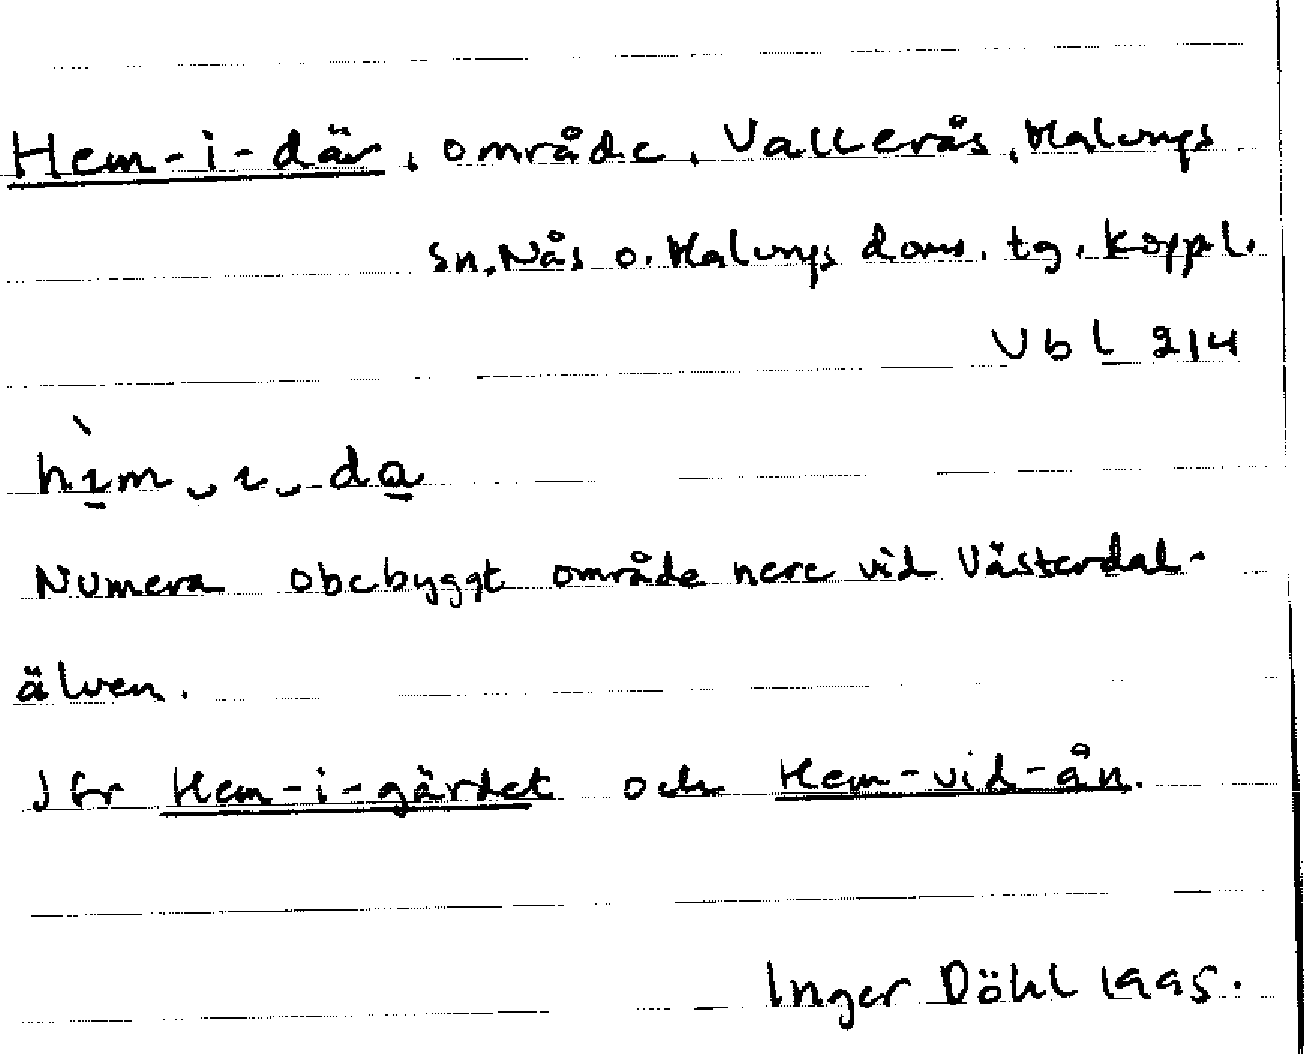 Hem-i-där, område, Vallerås, Malungs
sn, Nås o. Malungs doms. tg. Koppl.
Ubl 214
hìm ̮ ı ̮ da
Numera obebyggt område nere vid Västerdal-
älven.
Jfr Hem-i-gärdet och Hem-vid-ån.
Inger Döhl 1995.